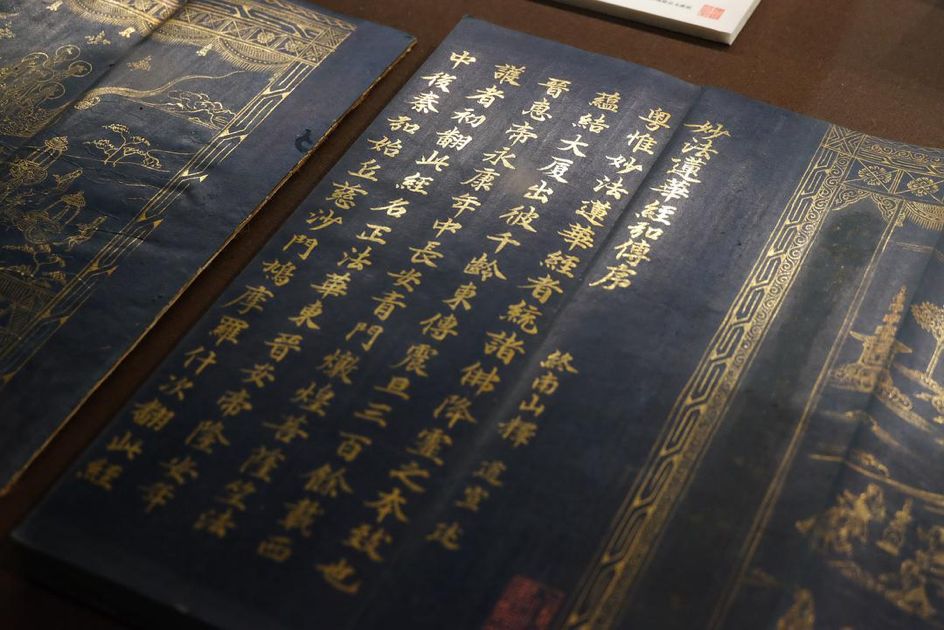 妙法蓮華經弘傳序
終南山釋 道宣 述
粵惟妙法蓮華經者統諸佛降靈之本致也
蘊結大厦出彼千齡東傳震旦三百餘載西
晉惠帝永康年中長安青門燉煌菩薩竺法
護者初翻此經名正法華東晉安帝隆安年
中後秦弘始丘慈沙門鳩摩羅什次翻此經